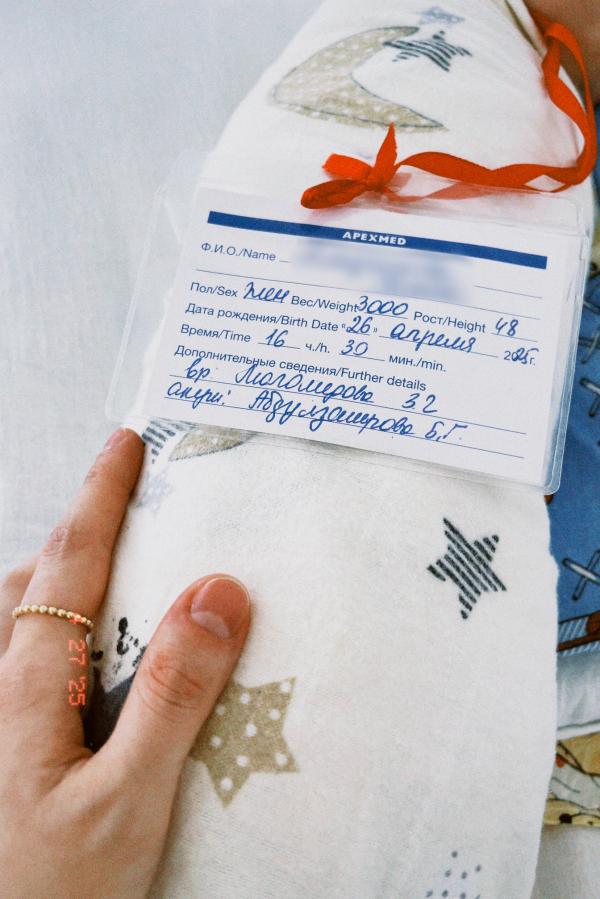 APEXMED
Ф.И.О./Name
Пол/Sex жен Вес/Weight 3000 Рост/Height 48
Дата рождения/Birth Date "26" апреля 2025г.
Время/Time 16 ч./h. 30 мин./min.
Дополнительные сведения/Further details
вр Магомедова З.Г
акуш: Абдулзагирова Б,Г.
27 '25